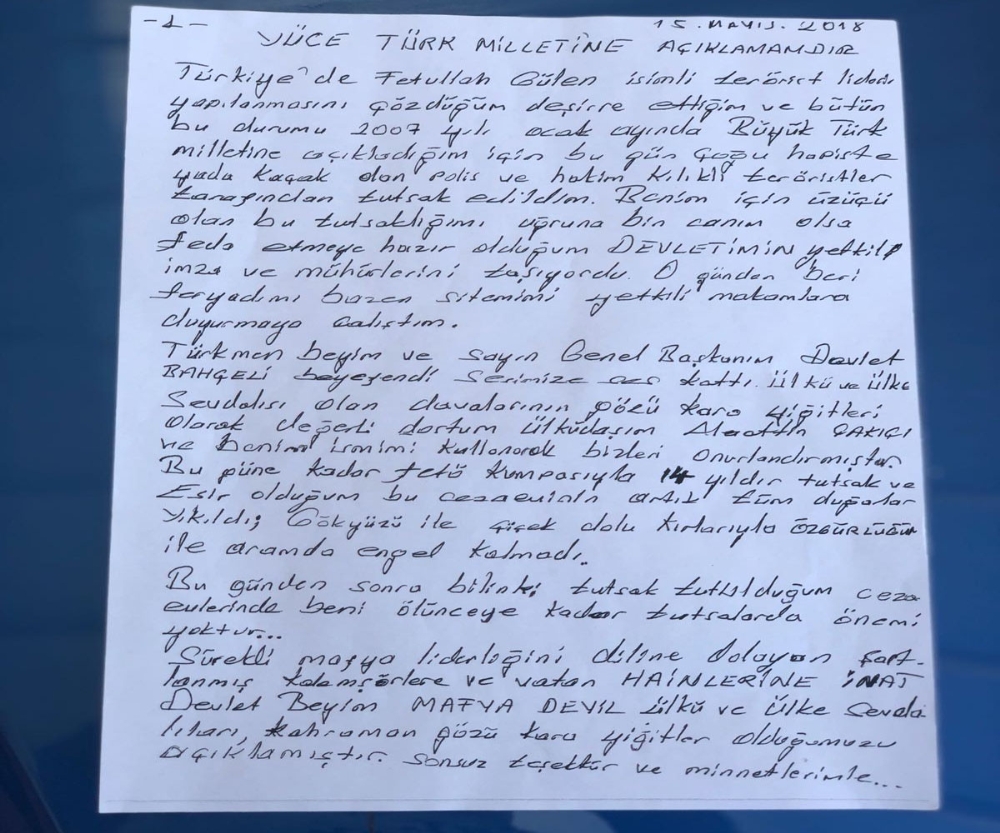 -1-
15.MAYIS.2018
YÜCE TÜRK MİLLETİNE AÇIKLAMAMDIR
Türkiye'de Fetullah Gülen isimli terörist lideri
yapılanmasını çözdüğüm deşifre ettiğim ve bütün
bu durumu 2007 yılı ocak ayında Büyük Türk
milletine açıkladığım için bu gün çoğu hapiste
yada kaçak olan polis ve hakim kılıklı teröristler
tarafından tutsak edildim. Benim için üzücü
olan bu tutsaklığımı uğruna bin canım olsa
feda etmeye hazır olduğum DEVLETİMİN yetkili
imza ve mühürlerini taşıyordu. O günden beri
feryadımı bazen sitemimi yetkili makamlara
duyurmaya çalıştım.
Türkmen beyim ve Sayın Genel Başkanım Devlet
BAHÇELİ beyefendi sesimize ses kattı. Ülkü ve ülke
Sevdalısı olan davalarının gözü kara yiğitleri
olarak değerli dostum ülküdaşım Alaattin ÇAKICI
ve benim ismimi kullanarak bizleri onurlandırmıştır.
Bu güne kadar fetö kumpasıyla 14 yıldır tutsak ve
Esir olduğum bu cezaevinin artık tüm duvarlar
yıkıldı; Gökyüzü ile çiçek dolu kırlarıyla ÖZGÜRLÜĞÜM
ile aramda engel kalmadı.
Bu günden sonra bilinki tutsak tutulduğum ceza
evlerinde beni ölünceye kadar tutsalarda önemi
yoktur...
Sürekli mafya liderliğini diline dolayan şart-
lanmış kalemşörlere ve vatan HAİNLERİNE İNAT
Devlet Beyim MAFYA DEĞİL ülkü ve ülke Sevda
lıları, kahraman gözü kara yiğitler olduğumuzu
açıklamıştır. Sonsuz teşekkür ve minnetlerimle...